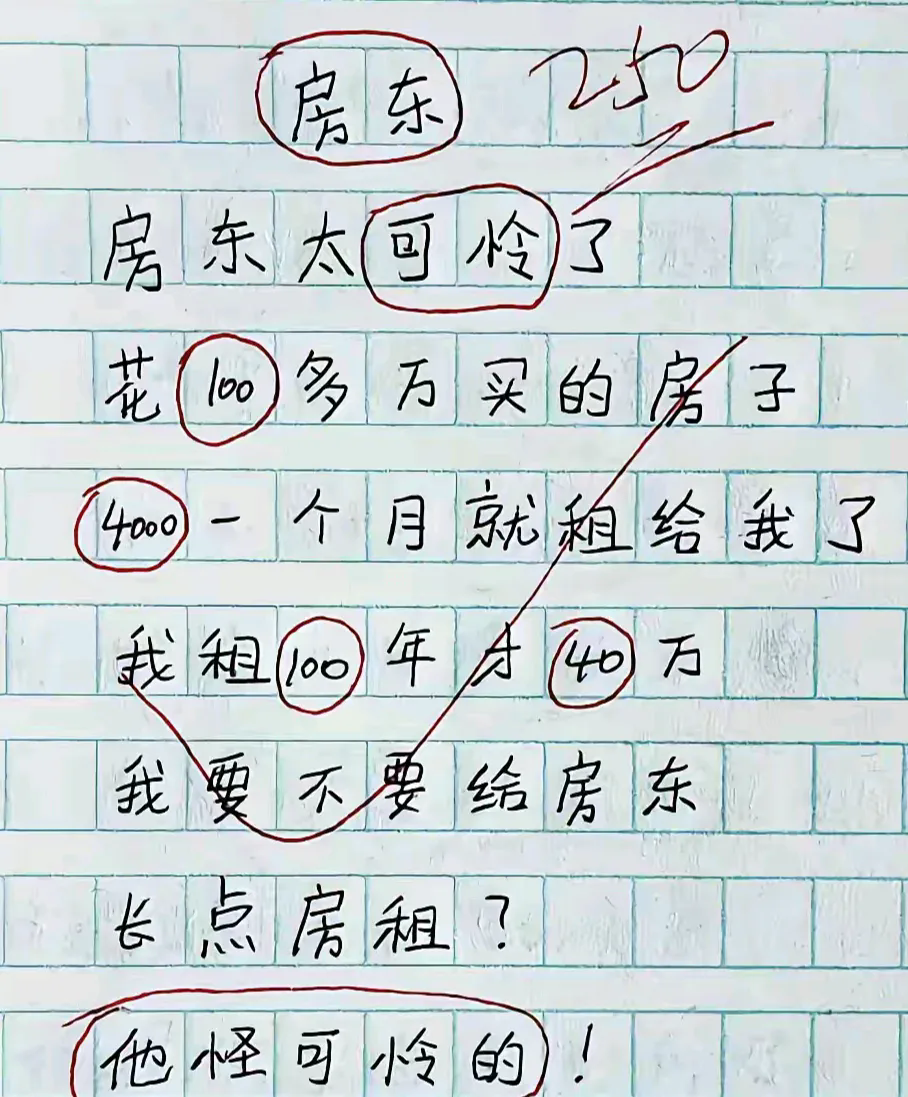 房东 250
房东太可怜了
花100多万买的房子
4000一个月就租给我了
我租100年才40万
我要不要给房东
长点房租?
他怪可怜的!